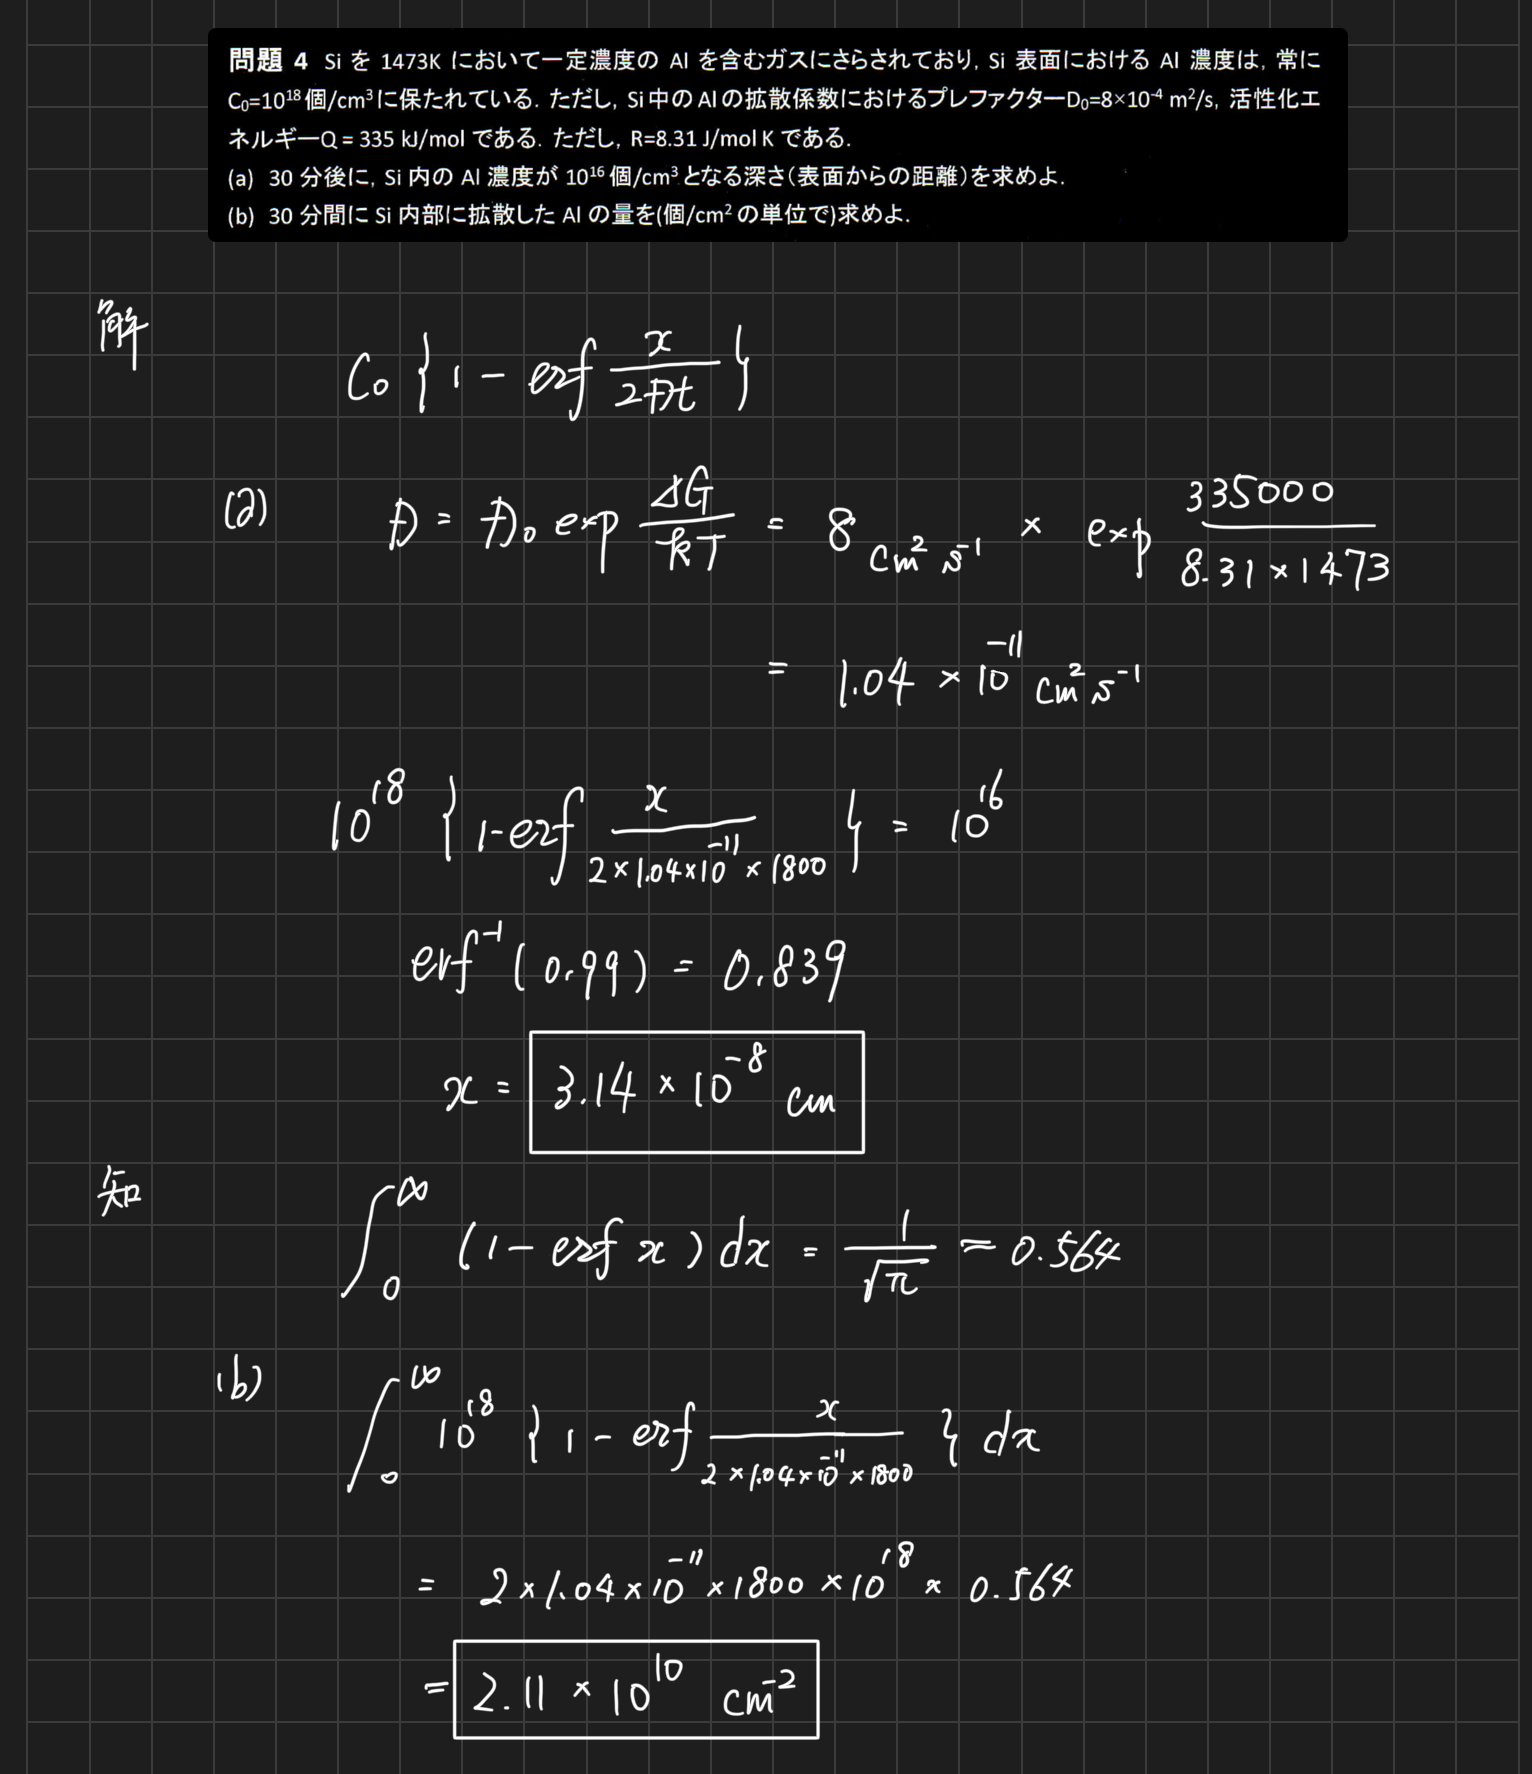 問題 4 Si を 1473K において一定濃度の Al を含むガスにさらされており, Si 表面における Al 濃度は, 常に
C₀=10¹⁸個/cm³に保たれている. ただし, Si中のAlの拡散係数におけるプレファクターD₀=8×10⁻⁴ m²/s, 活性化エ
ネルギーQ = 335 kJ/mol である. ただし, R=8.31 J/mol K である.
(a) 30 分後に, Si 内の Al 濃度が 10¹⁶個/cm³となる深さ(表面からの距離)を求めよ.
(b) 30 分間に Si 内部に拡散した Al の量を(個/cm²の単位で)求めよ.
解
C₀ { 1 - erf x/2Dt }
(a) D = D₀ exp ΔG/kT = 8 cm² s⁻¹ × exp 335000/8.31×1473
= 1.04 × 10⁻¹¹ cm² s⁻¹
10¹⁸ { 1-erf x/2×1.04×10⁻¹¹×1800 } = 10¹⁶
erf⁻¹ ( 0.99 ) = 0.839
x = 3.14 × 10⁻⁸ cm
知
∫₀^∞ (1 - erf x) dx = 1/√π ≈ 0.564
(b)
∫₀^∞ 10¹⁸ { 1 - erf x/2×1.04×10⁻¹¹×1800 } dx
= 2×1.04×10⁻¹¹×1800×10¹⁸ × 0.564
= 2.11 × 10¹⁰ cm⁻²